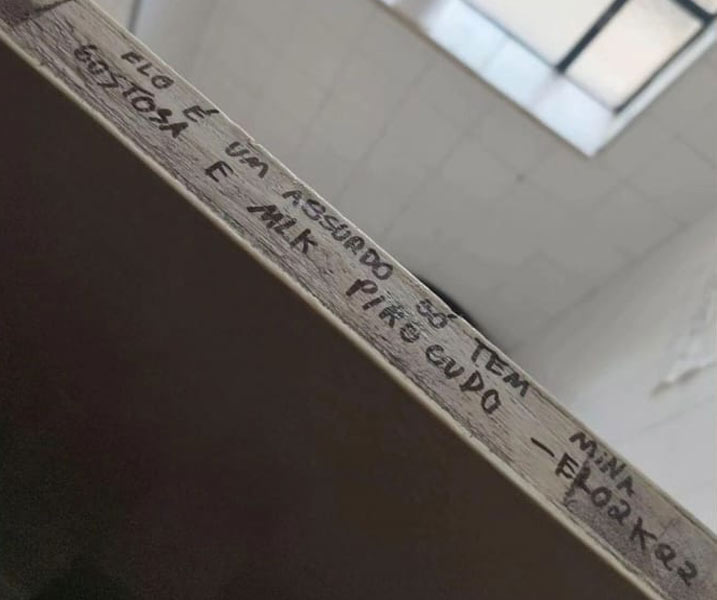 ELO É UM ABSURDO SÓ TEM MINA
GOSTOSA E MLK PIROCUDO -ELO2K22